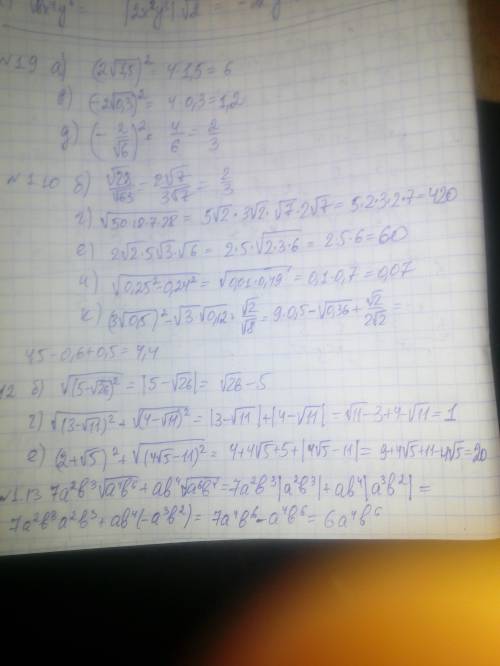 |2x²y³|·√2 =
№19 а) (2√1,5)² = 4·1,5 = 6
в) (-2√0,3)² = 4·0,3 = 1,2
д) (-2/√6)² = 4/6 = 2/3
№1.10 б) √28/√63 = 2√7/3√7 = 2/3
г) √50·18·7·28 = 5√2·3√2·√7·2√7 = 5·2·3·2·7 = 420
е) 2√2·5√3·√6 = 2·5·√2·3·6 = 2·5·6 = 60
и) √0,25²-0,24² = √0,01·0,49 = 0,1·0,7 = 0,07
к) (3√0,5)² - √3·√0,12 + √2/√8 = 9·0,5 - √0,36 + √2/2√2 =
4,5 - 0,6 + 0,5 = 4,4
12 б) √(5-√26)² = |5-√26| = √26 - 5
г) √(3-√11)² + √(4-√11)² = |3-√11| + |4-√11| = √11 - 3 + 4 - √11 = 1
е) (2+√5)² + √(4√5-11)² = 4+4√5+5+|4√5-11| = 9+4√5+11-4√5 = 20
№1.13 7a²b³√a⁴b⁶ + ab⁴√a⁶b⁴ = 7a²b³|a²b³| + ab⁴|a³b²| =
7a²b³a²b³ + ab⁴(-a³b²) = 7a⁴b⁶ - a⁴b⁶ = 6a⁴b⁶